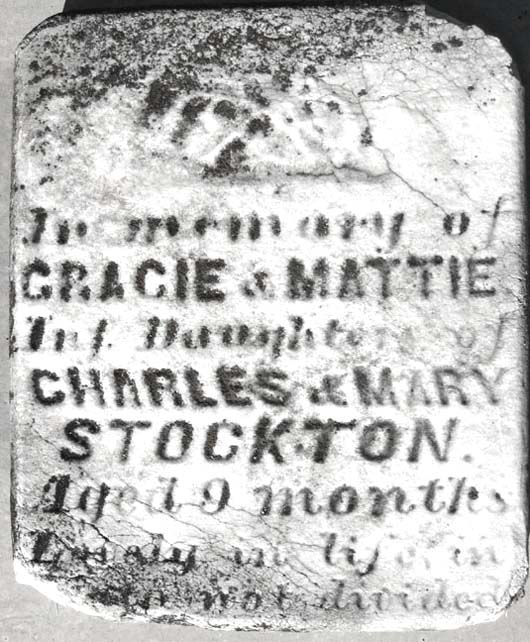 In memory of
GRACIE & MATTIE
Inf. Daughters of
CHARLES & MARY
STOCKTON.
Aged 9 months
Lovely in life, in
not divided